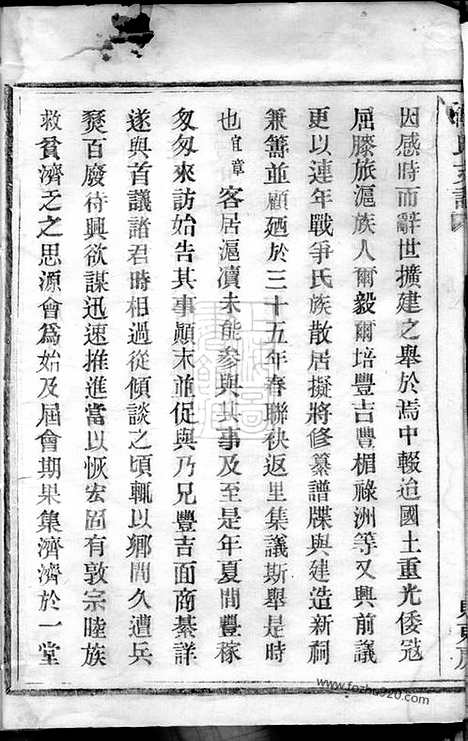 因感時而辭世擴建之舉於焉中輟迨國土重光倭寇
屈膝旅滬族人爾毅爾培豐吉豐楣祿洲等又興前議
更以連年戰爭氏族散居擬將修纂譜牒與建造新祠
兼籌並顧廼於三十五年春聯袂返里集議斯舉是時
也宜章客居滬瀆未能參與其事及至是年夏間豐稼
匆匆來訪始告其事顛末並促與乃兄豐吉面商綦詳
遂與首議諸君時相過從傾談之頃輒以鄉間久遭兵
燹百廢待興欲謀迅速推進當以恢宏固有敦宗睦族
救貧濟乏之思源會爲始及屆會期果集濟濟於一堂
www.fozhu920.com